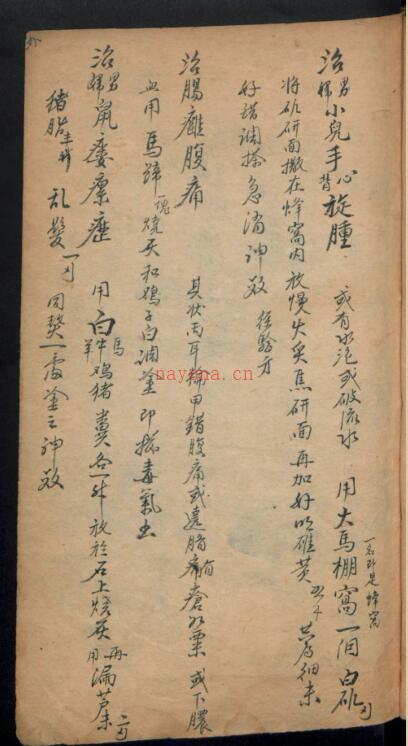 治男婦小兒手心背旋腫 或有水泡或破流水 用大馬棚窩一個 白矾
一名即是蜂窩
將矾研面撒在蜂窩内放慢火炙焦研面再加好明雄黄 共为细末
好醋調搽急消神效 经驗方
治腸癰腹痛 其状两耳輪甲錯腹痛或遶臍有瘡如粟或下膿
血用馬蹄一塊燒灰和鸡子白調塗即拔毒氣出
治男婦鼠瘻瘰癧 用白馬牛羊鸡猪糞各一 放於石上燒灰再用漏蘆
猪脂 乱髮 同熬一處塗之神效
nayona.cn